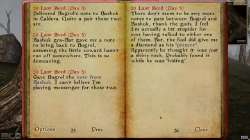 20 Last Seed (Day 5)
Delivered Bagrol's note to Bashuk
in Caldera. Quite a pair those two
are.
20 Last Seed (Day 5)
Bashuk gra-Bat gave me a note
to bring back to Bagrol,
assuming the little coward hasn't
run off somewhere. This is
ridiculous.
20 Last Seed (Day 5)
Gave Bagrol the note from
Bashuk. I can't believe I'm
playing messenger for these two.
20 Last Seed (Day 5)
There don't seem to be any more
notes to pass between Bagrol and
Bashuk, thank the gods. I feel
I'm actually a bit stupider for
ever having talked to either one
of them. But, the fool did give me
a diamond as his "present".
Apparently he thought it was just
a shiny rock. Probably found it
while he was
Options
Prev
Close